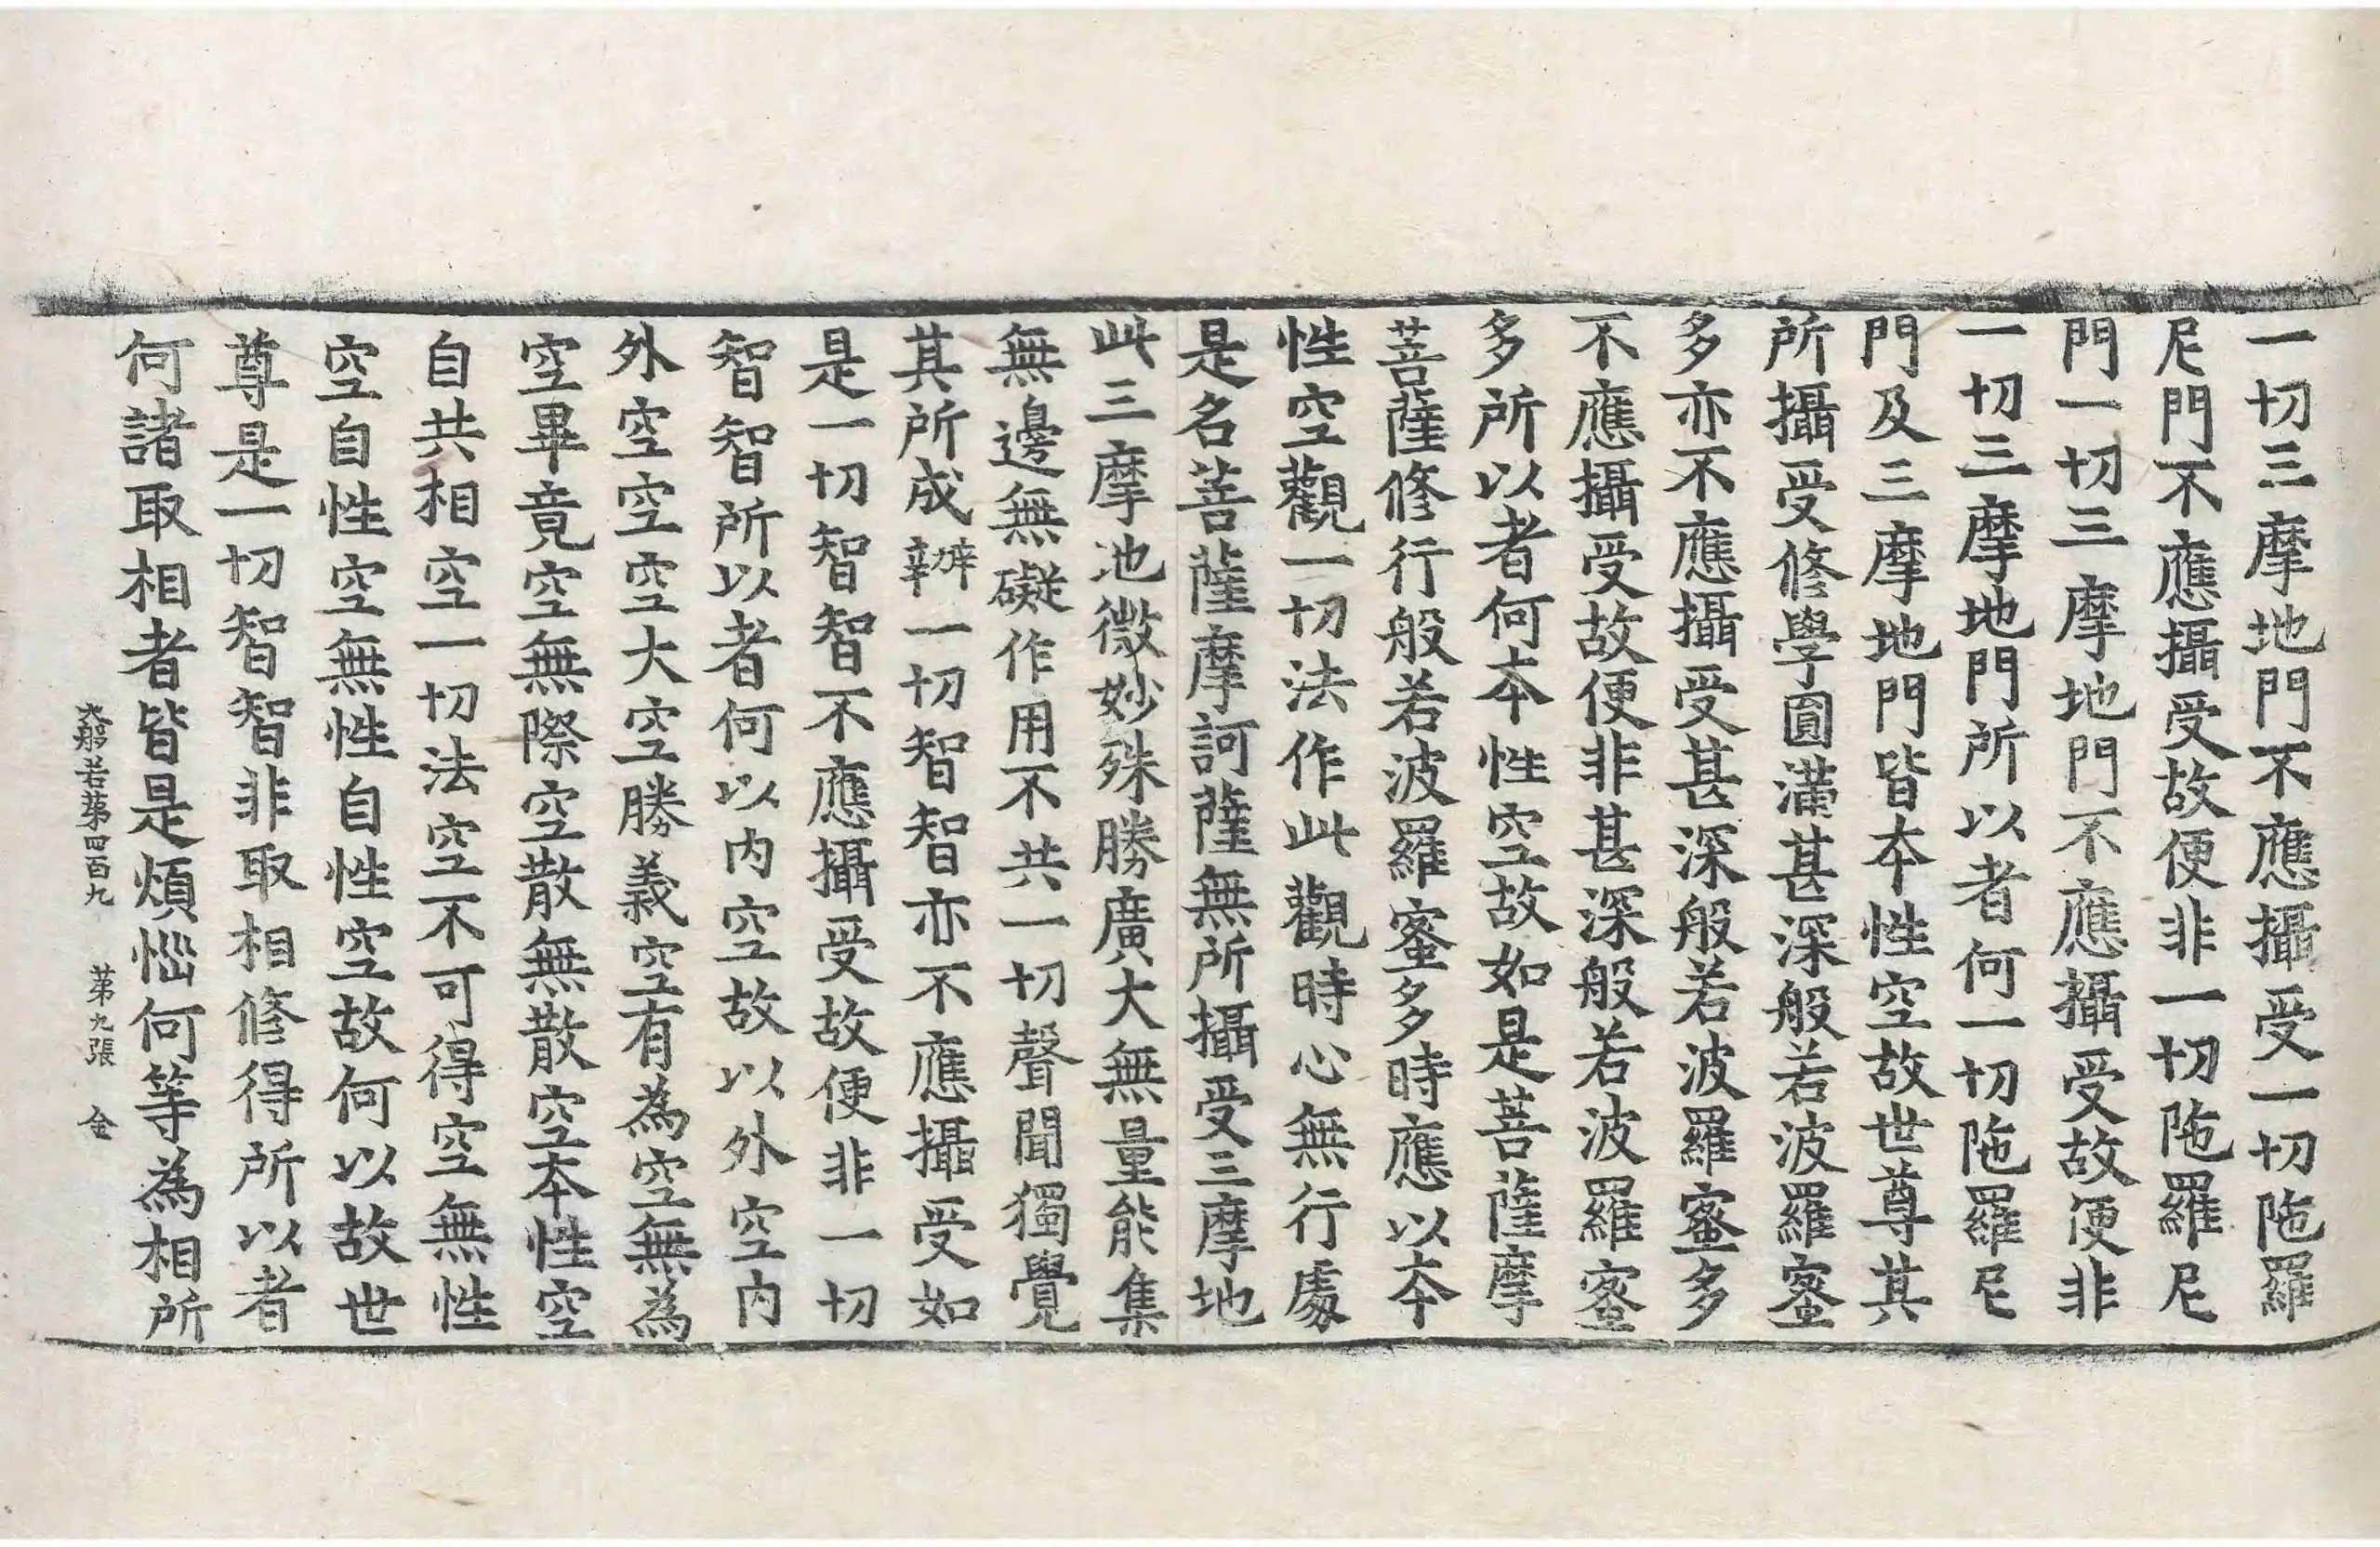 一切三摩地門不應攝受一切陁羅
尼門不應攝受故便非一切陁羅尼
門一切三摩地門不應攝受故便非
一切三摩地門所以者何一切陁羅尼
門及三摩地門皆本性空故世尊其
所攝受修學圓滿甚深般若波羅蜜
多亦不應攝受甚深般若波羅蜜多
不應攝受故便非甚深般若波羅蜜
多所以者何本性空故如是菩薩摩
菩薩修行般若波羅蜜多時應以本
性空觀一切法作此觀時心無行處
是名菩薩摩訶薩無所攝受三摩地
此三摩地微妙殊勝廣大無量能集
無邊無礙作用不共一切聲聞獨覺
其所成辦一切智智亦不應攝受如
是一切智智不應攝受故便非一切
智智所以者何以內空故以外空內
外空空空大空勝義空有為空無為
空畢竟空無際空散無散空本性空
自共相空一切法空不可得空無性
空自性空無性自性空故何以故世
尊是一切智智非取相修得所以者
何諸取相者皆是煩惱何等為相所
大般若第四百九 第九張 金